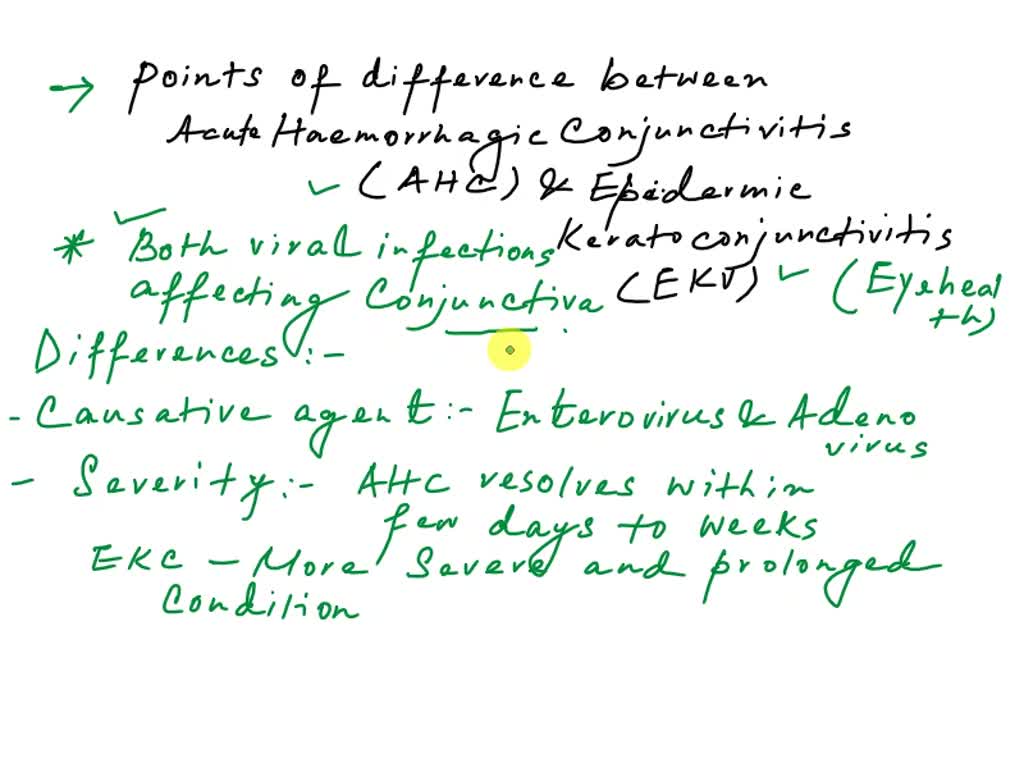 → Points of difference between
Acute Haemorrhagic Conjunctivitis
(AHC) & Epidermic
Keratoconjunctivitis
(EKV) (Eyeheal
th)
* Both viral infections
affecting Conjunctiva
Differences:-
- Causative agent:- Enterovirus & Adeno
virus
- Severity:- AHC resolves within
few days to weeks
EKC - More Severe and prolonged
Condition